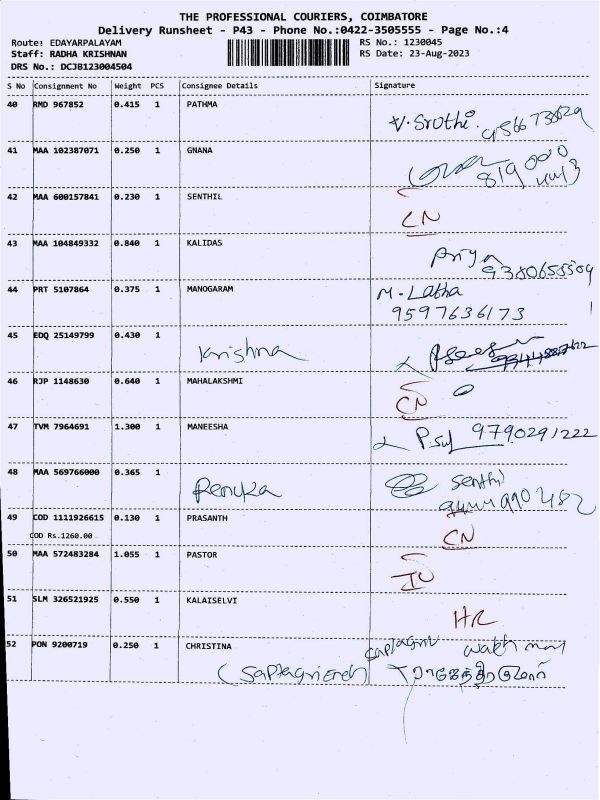 THE PROFESSIONAL COURIERS, COIMBATORE
Delivery Runsheet - P43 - Phone No.:0422-3505555 - Page No.:4
Route: EDAYARPALAYAM RS No.: 1230045
Staff: RADHA KRISHNAN RS Date: 23-Aug-2023
DRS No.: DCJB123004504
S No Consignment No Weight PCS Consignee Details Signature
40 RMD 967852 0.415 1 PATHMA V. Sruthi.
41 MAA 102387071 0.250 1 GNANA
42 MAA 600157841 0.230 1 SENTHIL CN
43 MAA 104849332 0.840 1 KALIDAS Priya
9380655509
44 PRT 5107864 0.375 1 MANOGARAM M. Latha
9597636173
45 EDQ 25149799 0.430 1 Krishna
46 RJP 1148630 0.640 1 MAHALAKSHMI CN
47 TVM 7964691 1.300 1 MANEESHA 9790291222
48 MAA 569766000 0.365 1 Renuka Senthil
49 COD 1111926615 0.130 1 PRASANTH CN
COD Rs.1260.00
50 MAA 572483284 1.055 1 PASTOR
51 SLM 326521925 0.550 1 KALAISELVI HR
52 PON 9200719 0.250 1 CHRISTINA